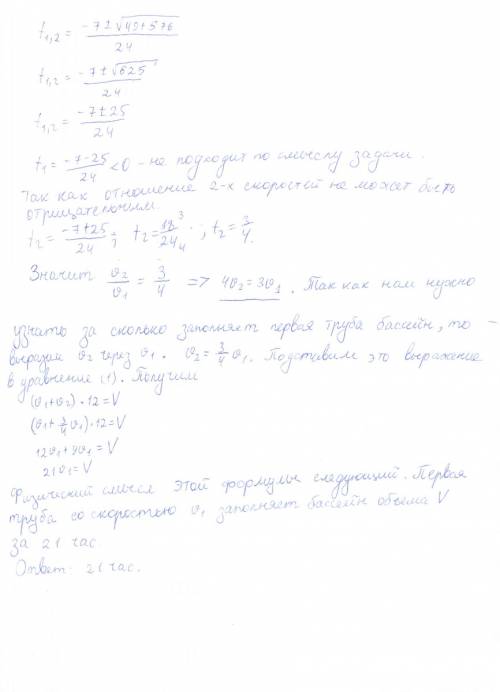 t₁,₂ = (-7 ± √(49+576)) / 24
t₁,₂ = (-7 ± √625) / 24
t₁,₂ = (-7 ± 25) / 24
t₁ = (-7-25) / 24 < 0 - не подходит по смыслу задачи.
Так как отношение 2-х скоростей не может быть
отрицательным.
t₂ = (-7+25) / 24; t₂ = 18³ / 24₄; t₂ = 3/4.
Значит v₂/v₁ = 3/4 => 4v₂ = 3v₁. Так как нам нужно
узнать за сколько заполняет первая труба бассейн, то -
выразим v₂ через v₁. v₂ = 3/4 v₁. Подставим это выражение
в уравнение (1). Получим
(v₁+v₂)·12=V
(v₁+3/4 v₁)·12=V
12v₁+9v₁=V
21v₁=V
Физический смысл этой формулы следующий. Первая
труба со скоростью v₁ заполняет бассейн объема V
за 21 час.
Ответ: 21 час.